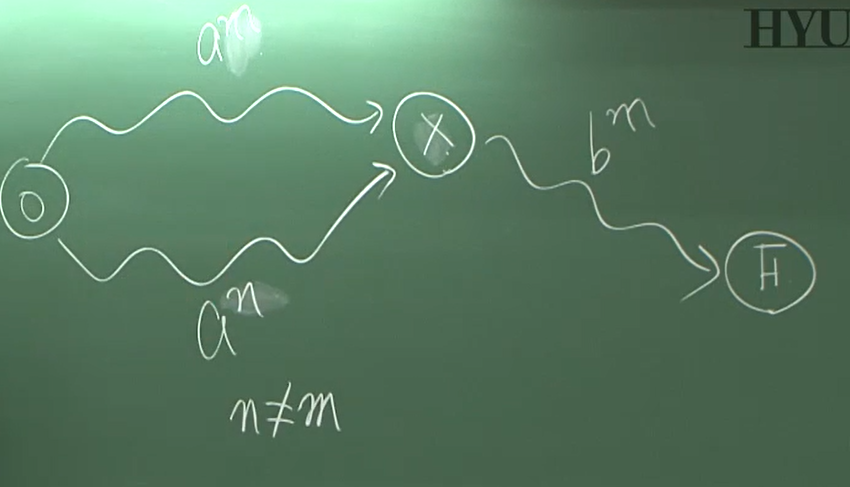 HYU
a^m
0
X
b^m
H
a^n
n≠m